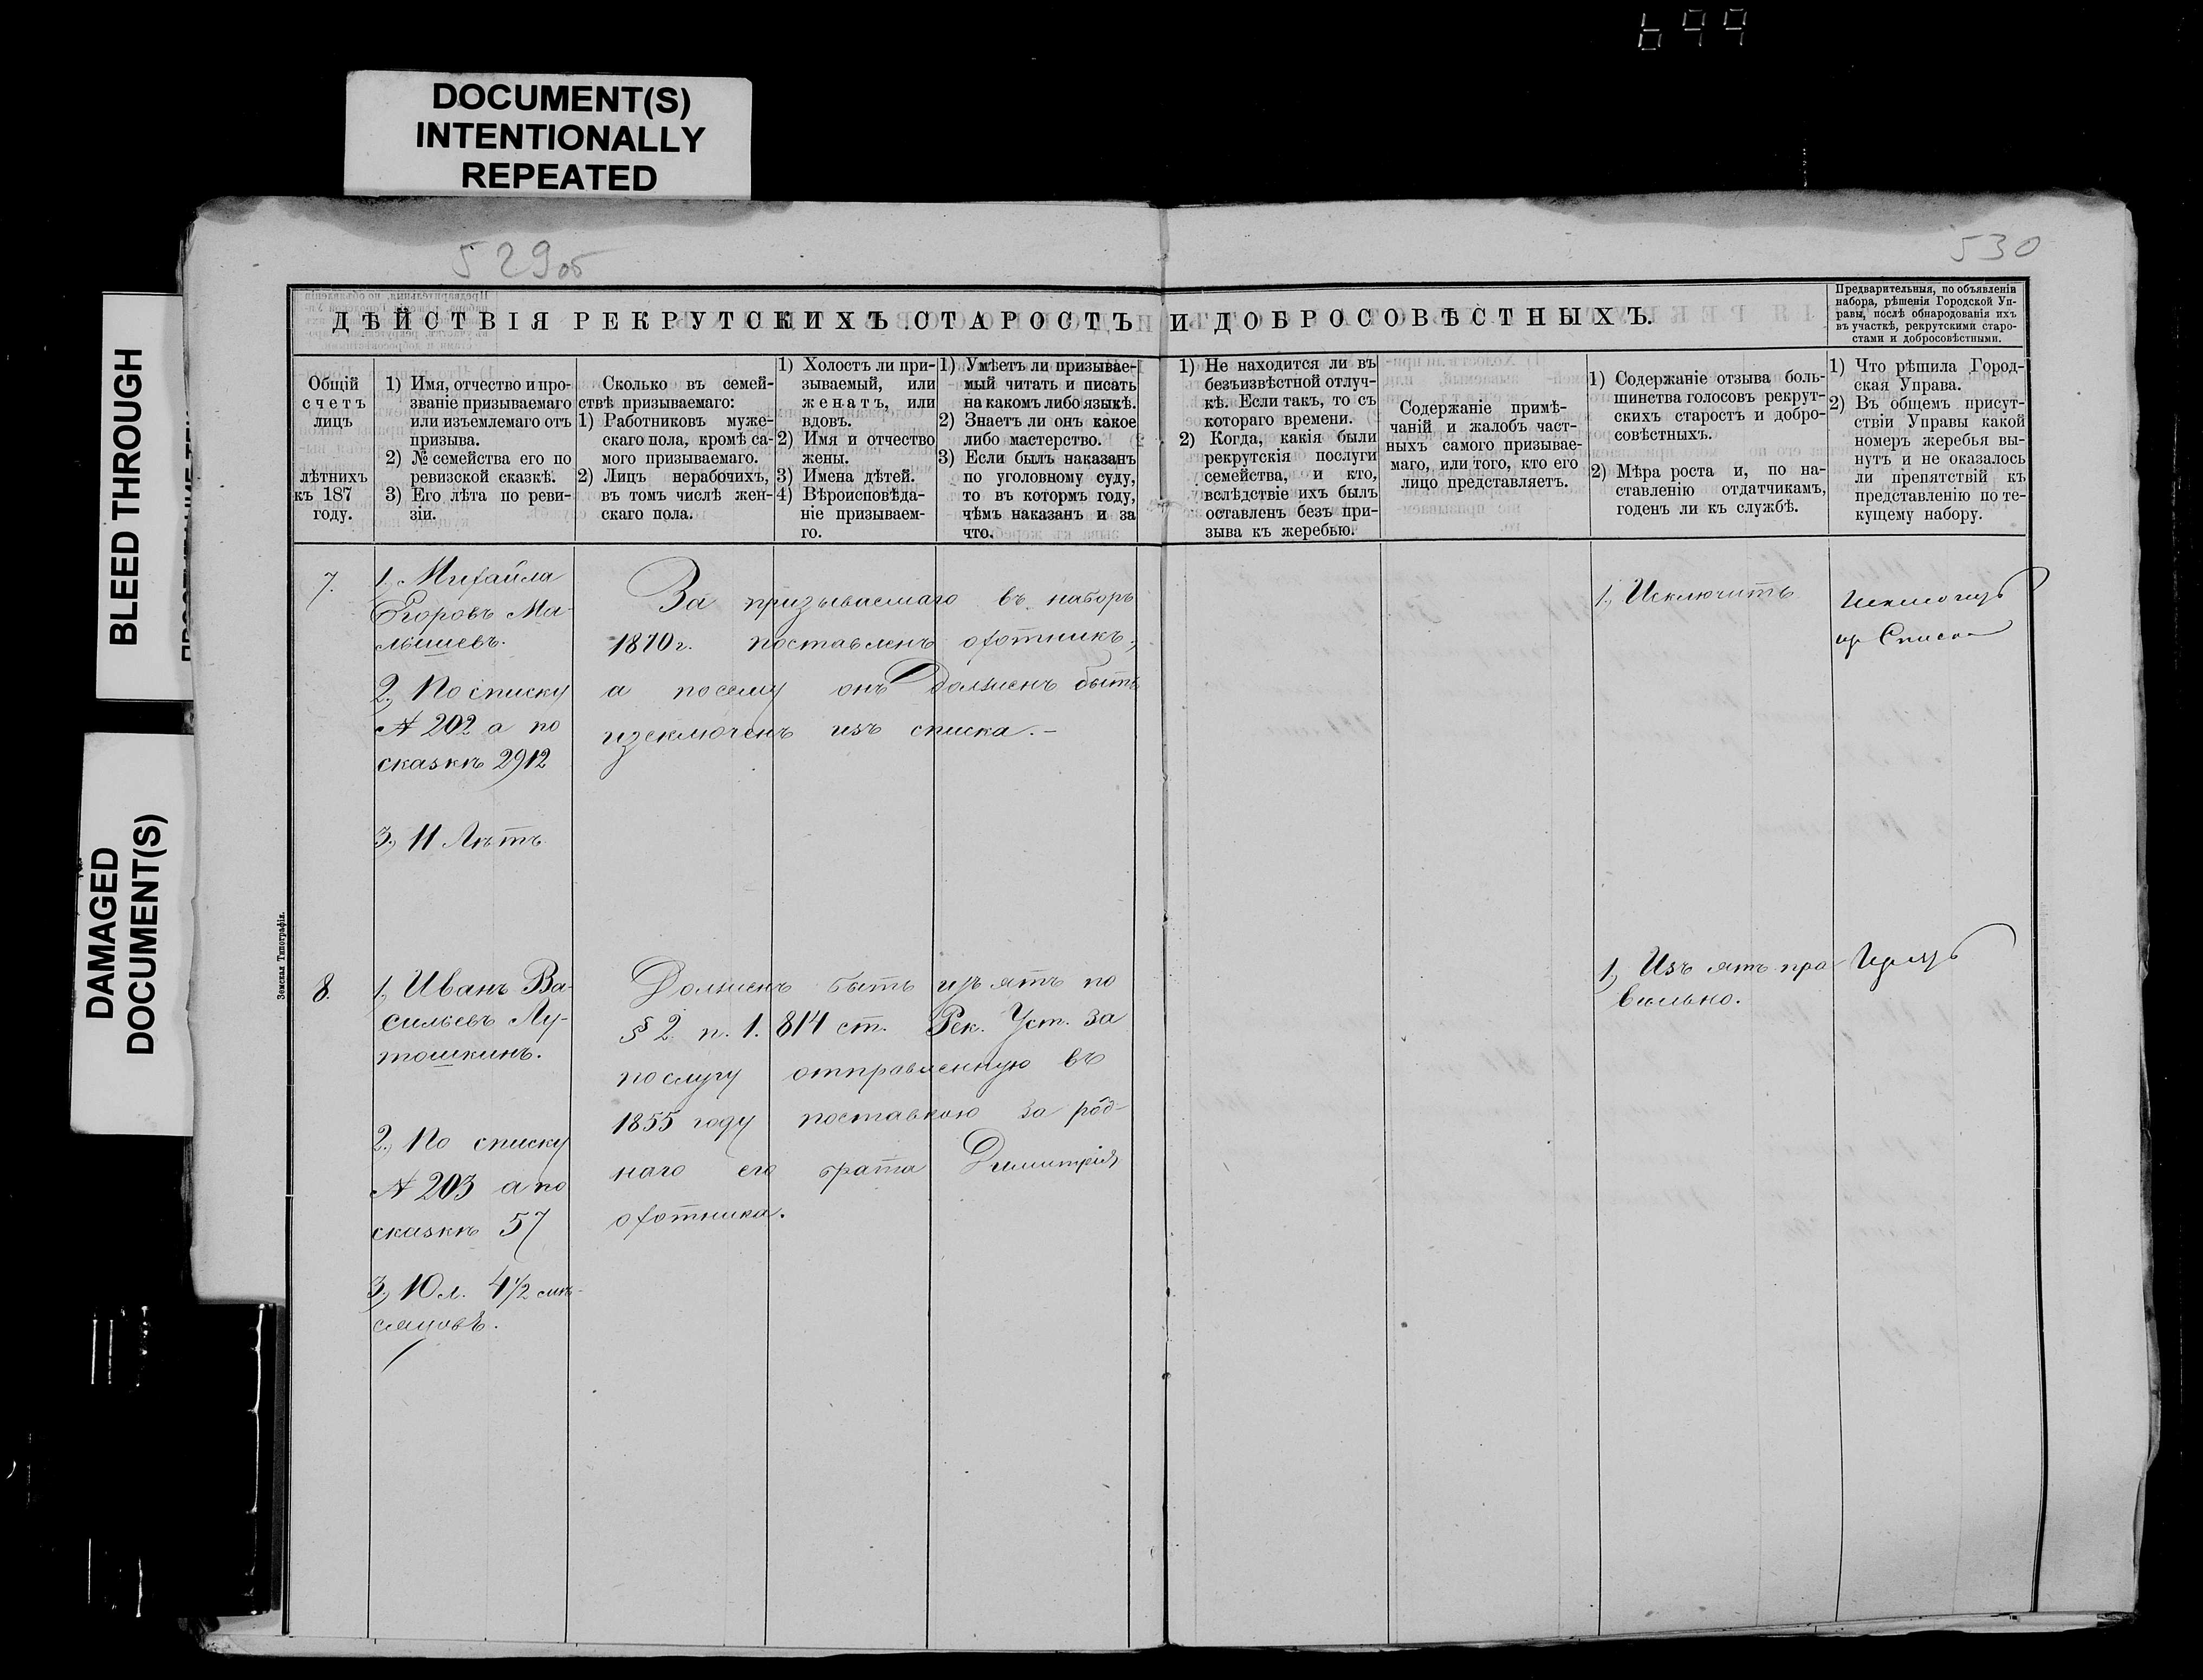 649
DOCUMENT(S)
INTENTIONALLY
REPEATED
BLEED THROUGH
DAMAGED
DOCUMENT(S)
529об
530
ДѢЙСТВІЯ РЕКРУТСКИХЪ СТАРОСТЪ И ДОБРОСОВѢСТНЫХЪ.
Предварительныя, по объявленіи
набора, рѣшенія Городской Уп-
равы, послѣ обнародованія ихъ
въ участкѣ, рекрутскими старо-
стами и добросовѣстными.
Общій
счетъ
лицъ
лѣтнихъ
къ 187
году.
1) Имя, отчество и про-
званіе призываемаго
или изъемлемаго отъ
призыва.
2) № семейства его по
ревизской сказкѣ.
3) Его лѣта по реви-
зіи.
Сколько въ семей-
ствѣ призываемаго:
1) Работниковъ муже-
скаго пола, кромѣ са-
мого призываемаго.
2) Лицъ нерабочихъ,
въ томъ числѣ жен-
скаго пола.
1) Холостъ ли при-
зываемый, или
женатъ, или
вдовъ.
2) Имя и отчество
жены.
3) Имена дѣтей.
4) Вѣроисповѣда-
ніе призываем-
го.
1) Умѣетъ ли призывае-
мый читать и писать
на какомъ либо языкѣ.
2) Знаетъ ли онъ какое
либо мастерство.
3) Если былъ наказанъ
по уголовному суду,
то въ которм году,
чѣмъ наказанъ и за
что.
1) Не находится ли въ
безъизвѣстной отлуч-
кѣ. Если такъ, то съ
котораго времени.
2) Когда, какія были
рекрутскія послуги
семейства, и кто,
вслѣдствіе ихъ былъ
оставленъ безъ при-
зыва къ жеребью.
Содержаніе примѣ-
чаній и жалобъ част-
ныхъ самого призывае-
маго, или того, кто его
лицо представляетъ.
1) Содержаніе отзыва боль-
шинства голосовъ рекрут-
скихъ старостъ и добро-
совѣстныхъ.
2) Мѣра роста и, по на-
ставленію отдатчикамъ,
годенъ ли къ службѣ.
1) Что рѣшила Город-
ская Управа.
2) Въ общемъ присут-
ствіи Управы какой
номеръ жеребья вы-
нутъ и не оказалось
ли препятствій къ
представленію по те-
кущему набору.
7.
1. Михайла
Егоровъ Ма-
лышевъ.
2., По списку
№ 202 а по
сказкѣ 2912
3., 11 Лѣтъ
За призываемаго въ наборъ
1870 г. поставленъ охотникъ,
а посему онъ долженъ быть
изключенъ изъ списка. –
1., Исключить
из Списка
Земская Типографія.
8.
1, Иванъ Ва-
сильевъ Лу-
тошкинъ.
2., По списку
№ 203 а по
сказкѣ 57
3., 10 л. 4 1/2 мѣ-
сяцовъ.
Долженъ быть изъятъ по
§ 2. п. 1. 814 ст. Рек. Уст. за
послугу отправленную въ
1855 году поставкою за род-
наго его брата Димитрія
охотника.
1, Изъятъ пра-
вильно.